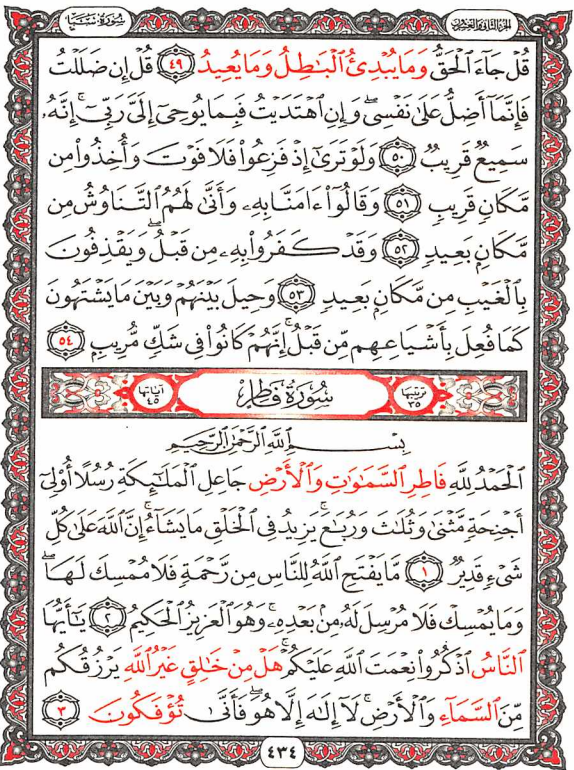 الجزء الثاني والعشرون
سُورَةُ سَبَإٍ
قُلْ جَآءَ ٱلْحَقُّ وَمَا يُبْدِئُ ٱلْبَٰطِلُ وَمَا يُعِيدُ ٤٩ قُلْ إِن ضَلَلْتُ
فَإِنَّمَآ أَضِلُّ عَلَىٰ نَفْسِىۖ وَإِنِ ٱهْتَدَيْتُ فَبِمَا يُوحِىٓ إِلَىَّ رَبِّىٓۚ إِنَّهُۥ
سَمِيعٌ قَرِيبٌ ٥٠ وَلَوْ تَرَىٰٓ إِذْ فَزِعُوا۟ فَلَا فَوْتَ وَأُخِذُوا۟ مِن
مَّكَانٍ قَرِيبٍ ٥١ وَقَالُوٓا۟ ءَامَنَّا بِهِۦ وَأَنَّىٰ لَهُمُ ٱلتَّنَاوُشُ مِن
مَّكَانٍۭ بَعِيدٍ ٥٢ وَقَدْ كَفَرُوا۟ بِهِۦ مِن قَبْلُۖ وَيَقْذِفُونَ
بِٱلْغَيْبِ مِن مَّكَانٍۭ بَعِيدٍ ٥٣ وَحِيلَ بَيْنَهُمْ وَبَيْنَ مَا يَشْتَهُونَ
كَمَا فُعِلَ بِأَشْيَاعِهِم مِّن قَبْلُۚ إِنَّهُمْ كَانُوا۟ فِى شَكٍّ مُّرِيبٍۭ ٥٤
ترتيبها ٣٥
سُورَةُ فَاطِرٍ
آياتها ٤٥
بِسْمِ ٱللَّهِ ٱلرَّحْمَٰنِ ٱلرَّحِيمِ
ٱلْحَمْدُ لِلَّهِ فَاطِرِ ٱلسَّمَٰوَٰتِ وَٱلْأَرْضِ جَاعِلِ ٱلْمَلَٰٓئِكَةِ رُسُلًا أُو۟لِىٓ
أَجْنِحَةٍ مَّثْنَىٰ وَثُلَٰثَ وَرُبَٰعَۚ يَزِيدُ فِى ٱلْخَلْقِ مَا يَشَآءُۚ إِنَّ ٱللَّهَ عَلَىٰ كُلِّ
شَىْءٍ قَدِيرٌ ١ مَّا يَفْتَحِ ٱللَّهُ لِلنَّاسِ مِن رَّحْمَةٍ فَلَا مُمْسِكَ لَهَاۖ
وَمَا يُمْسِكْ فَلَا مُرْسِلَ لَهُۥ مِنۢ بَعْدِهِۦۚ وَهُوَ ٱلْعَزِيزُ ٱلْحَكِيمُ ٢ يَٰٓأَيُّهَا
ٱلنَّاسُ ٱذْكُرُوا۟ نِعْمَتَ ٱللَّهِ عَلَيْكُمْۚ هَلْ مِنْ خَٰلِقٍ غَيْرُ ٱللَّهِ يَرْزُقُكُم
مِّنَ ٱلسَّمَآءِ وَٱلْأَرْضِۚ لَآ إِلَٰهَ إِلَّا هُوَۖ فَأَنَّىٰ تُؤْفَكُونَ ٣
٤٣٤